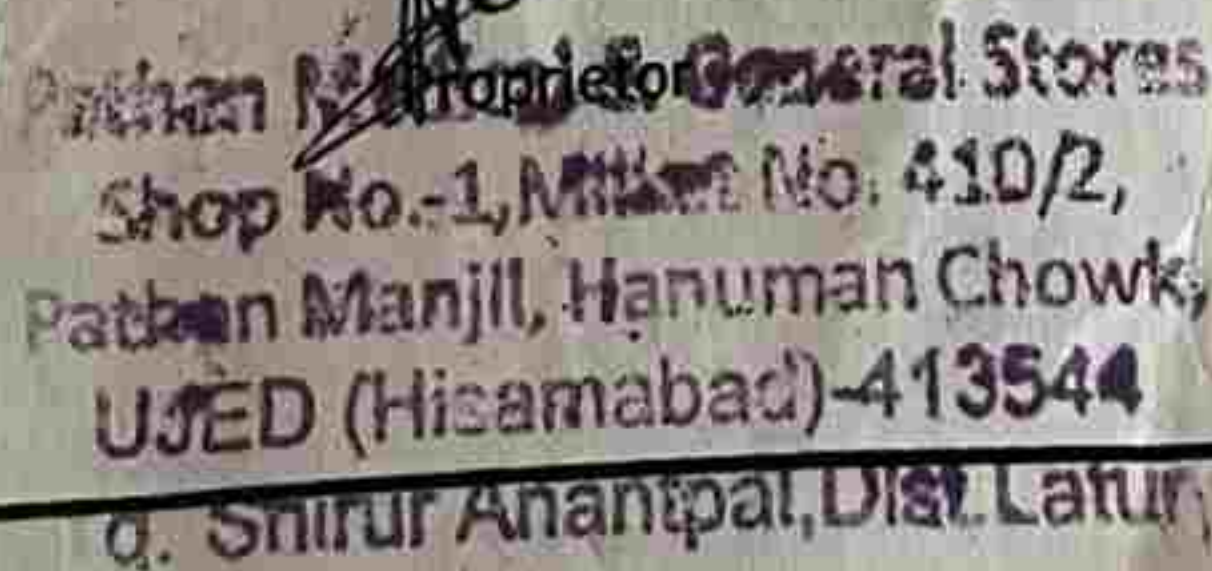 Pathan Proprietor General Stores
Shop No.-1, No. 410/2,
Pathan Manjil, Hanuman Chowk,
UJED (Hisamabad)-413544
q. Shirur Anantpal,Dist.Latur,